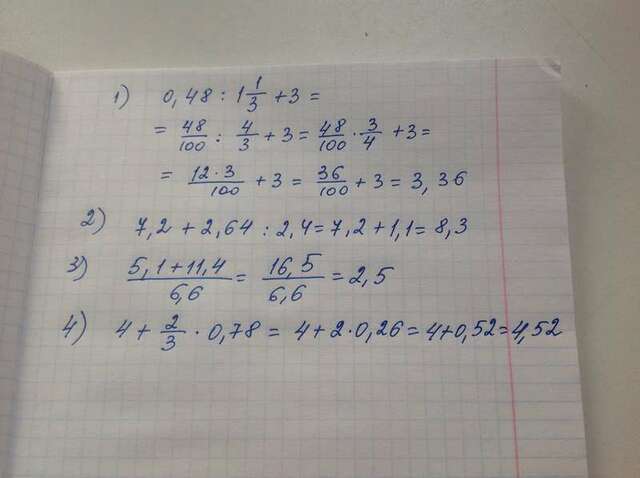 1) 0,48 : 1 1/3 + 3 =
= 48/100 : 4/3 + 3 = 48/100 · 3/4 + 3 =
= 12·3/100 + 3 = 36/100 + 3 = 3,36
2) 7,2 + 2,64 : 2,4 = 7,2 + 1,1 = 8,3
3) 5,1+11,4/6,6 = 16,5/6,6 = 2,5
4) 4 + 2/3 · 0,78 = 4+2·0,26 = 4+0,52 = 4,52